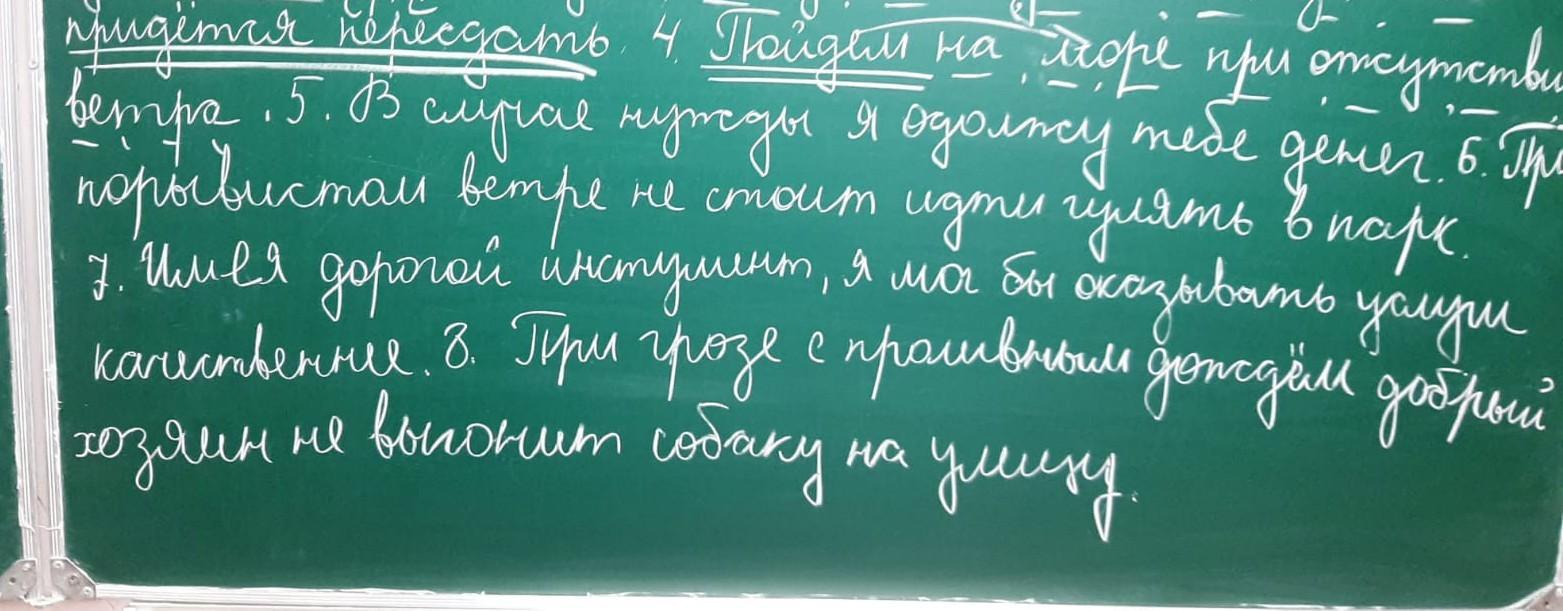 придётся пересдать. 4. Пойдём на море при отсутстви
ветра. 5. В случае нужды я одолжу тебе денег. 6. При
порывистом ветре не стоит идти гулять в парк.
7. Имея дорогой инстумент, я мог бы оказывать услуги
качественнее. 8. При грозе с проливным дождём добрый
хозяин не выгонит собаку на улицу.